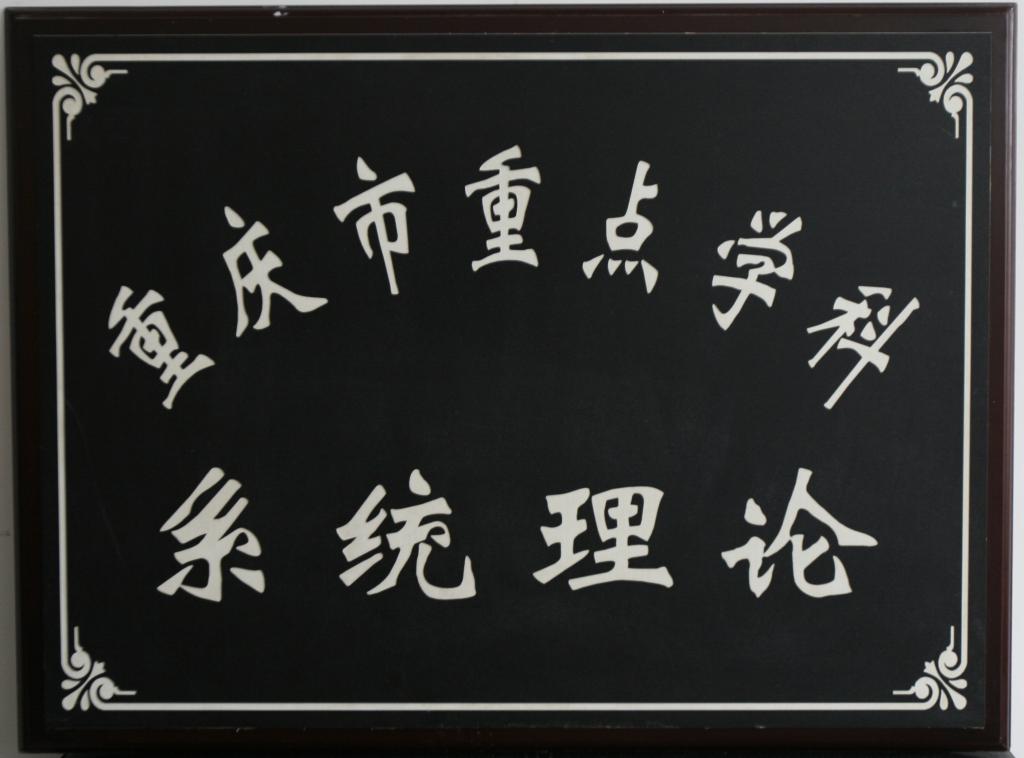 重庆市重点学科
系统理论